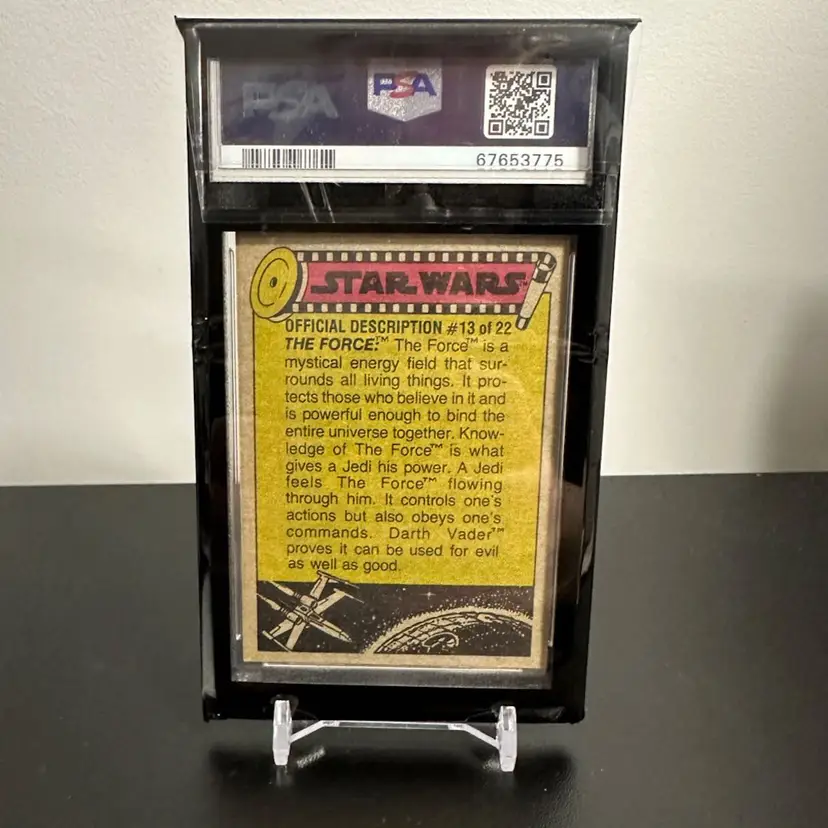 PSA PSA
67653775
STAR WARS™
OFFICIAL DESCRIPTION #13 of 22
THE FORCE:™ The Force™ is a
mystical energy field that sur-
rounds all living things. It pro-
tects those who believe in it and
is powerful enough to bind the
entire universe together. Know-
ledge of The Force™ is what
gives a Jedi his power. A Jedi
feels The Force™ flowing
through him. It controls one's
actions but also obeys one's
commands. Darth Vader™
proves it can be used for evil
as well as good.